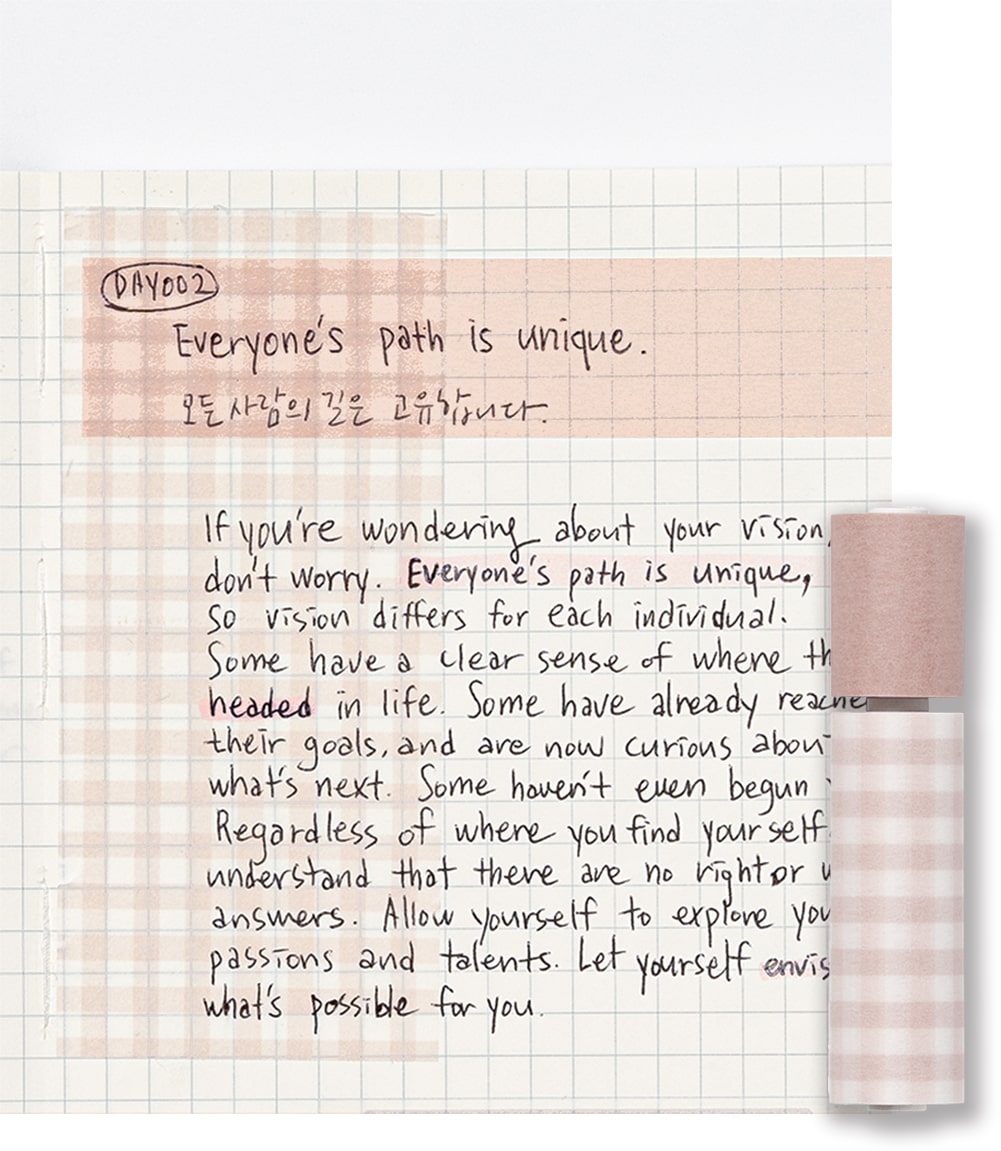 DAY002
Everyone's path is unique.
모든 사람의 길은 고유합니다.
If you're wondering about your vision,
don't worry. Everyone's path is unique,
so vision differs for each individual.
Some have a clear sense of where
headed in life. Some have already
their goals, and are now curious
what's next. Some haven't even begun
Regardless of where you find yourself
understand that there are no right or
answers. Allow yourself to explore
passions and talents. Let yourself
what's possible for you.